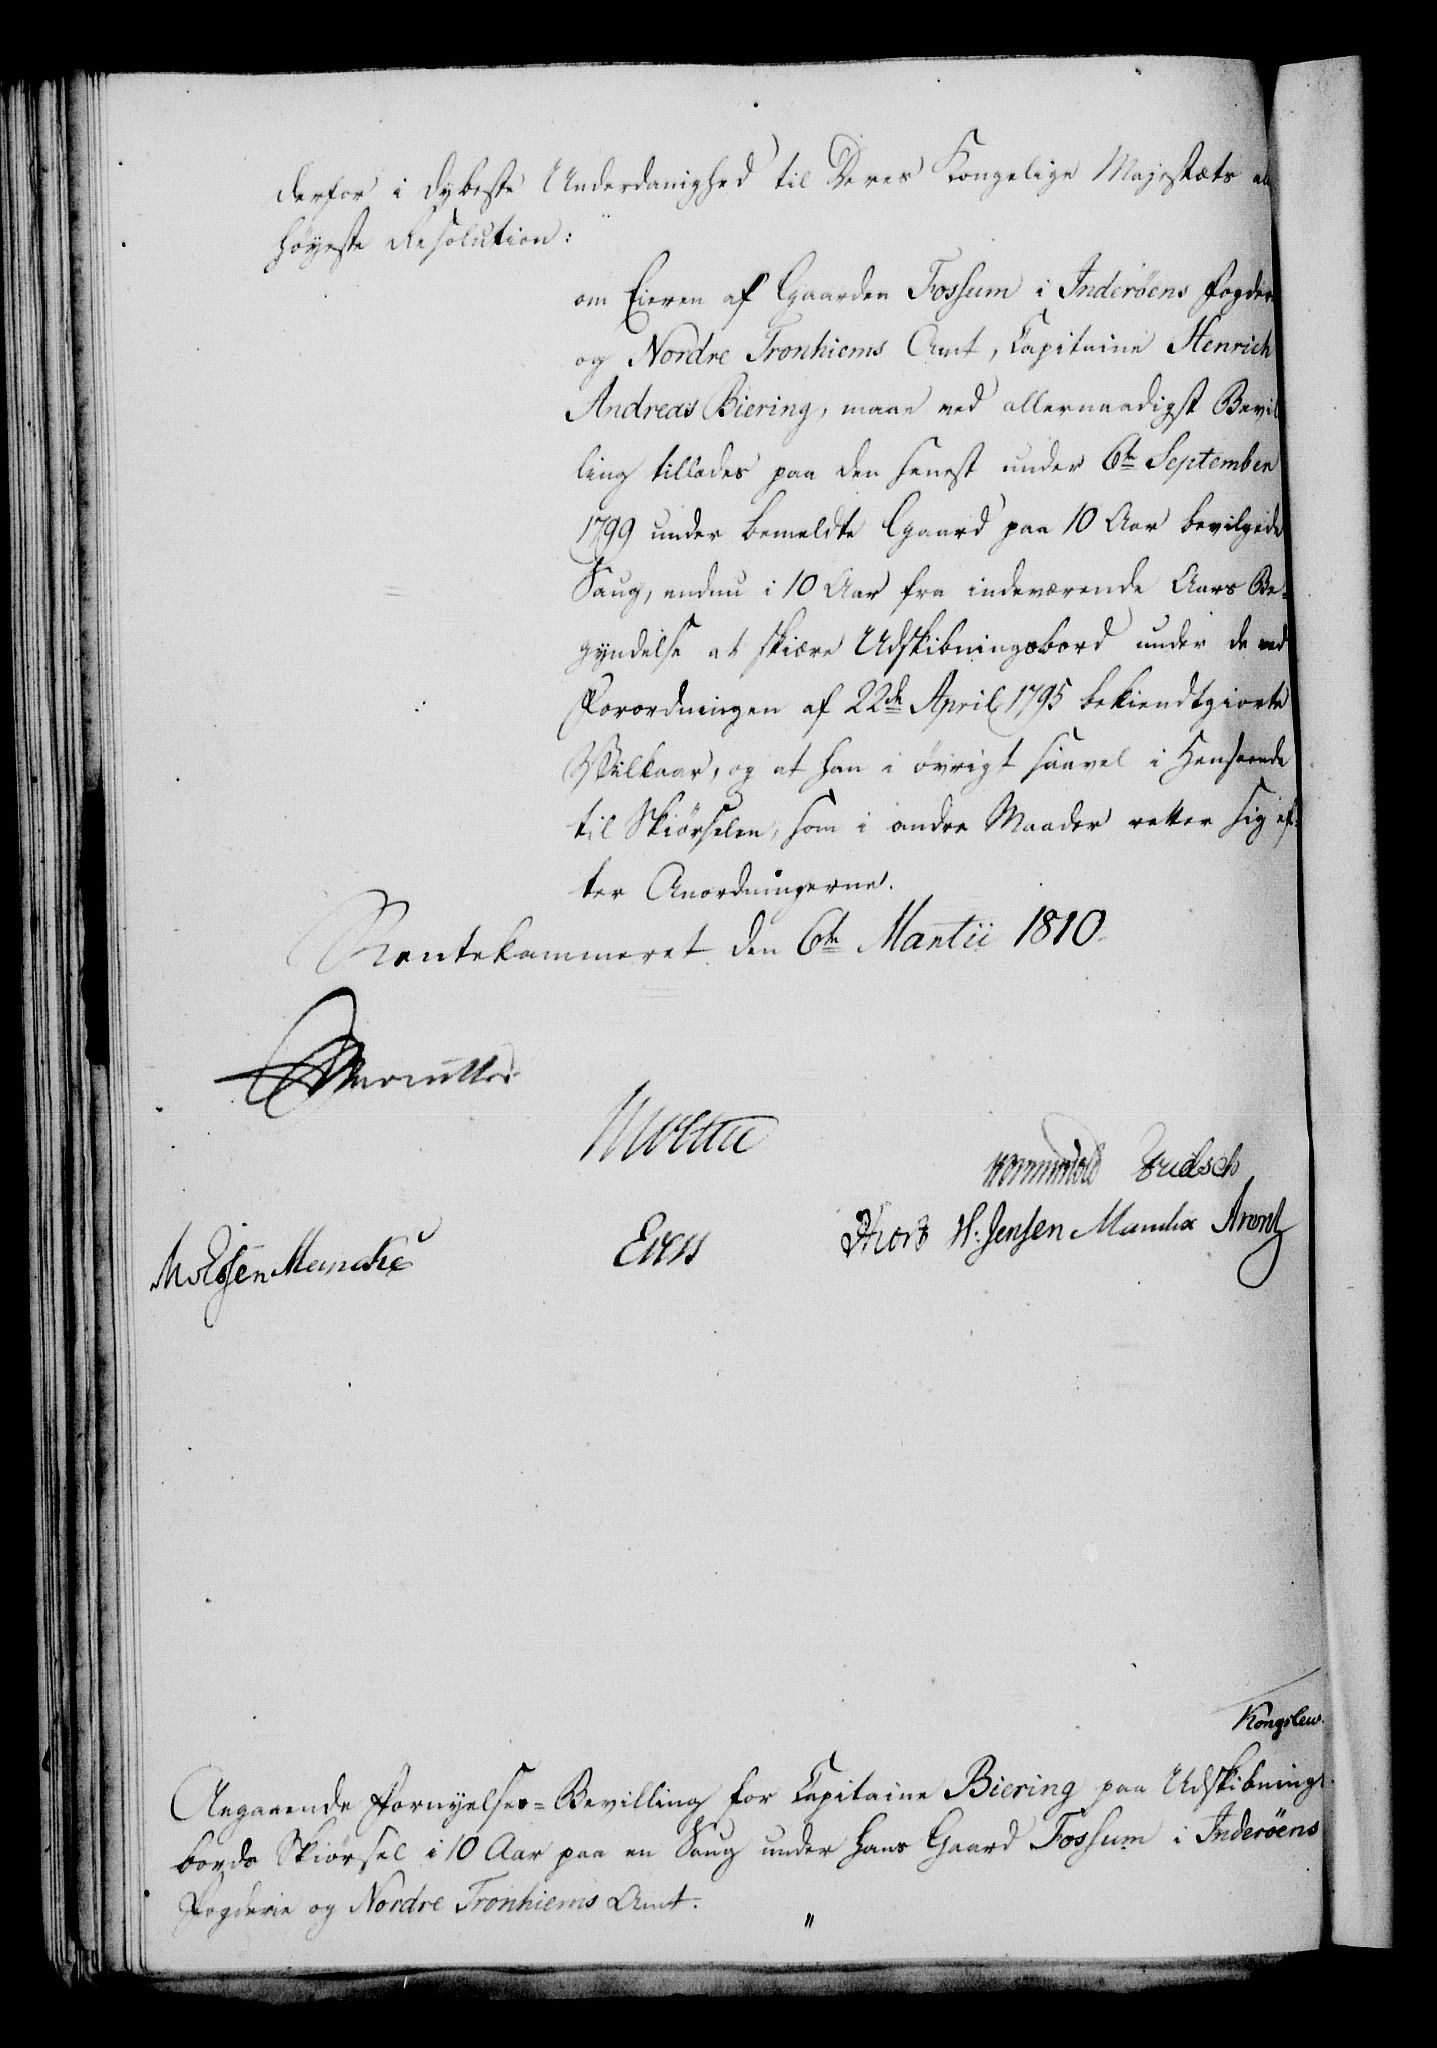 derfor i dybeste Underdanighed til Deres Kongelige Majestæts al
høyeste Resolution:
om Eieren af Gaarden Fossum i Inderöens Fogder
og Nordre Tronhiems Amt, Capitaine Henrich
Andreas Biering, maae ved allernaadigst Bevil
ling tillades paa den henest under 6te September
1799 under bemeldte Gaard paa 10 Aar bevilgede
Saug, endnu i 10 Aar fra indeværende Aars Be-
gyndelse at skiære Udskibningsbord under de ved
Forordningen af 22de April 1795 bekiendtgiorte
Vilkaar, og at han i øvrigt saavel i Henseende
til Skiørselen, som i andre Maader retter sig ef-
ter Anordningerne.
Rentekammeret den 6te Martii 1810.
Moltke
Wormskiold
Eien
Hiort H: Jensen Arentz
Meincke
Kongslew.
Angaaende Fornyelses-Bevilling for Capitaine Biering paa Udskibnings-
bords Skiørsel i 10 Aar paa en Saug under hans Gaard Fossum i Inderöens
Fogderie og Nordre Tronhiems Amt.
"